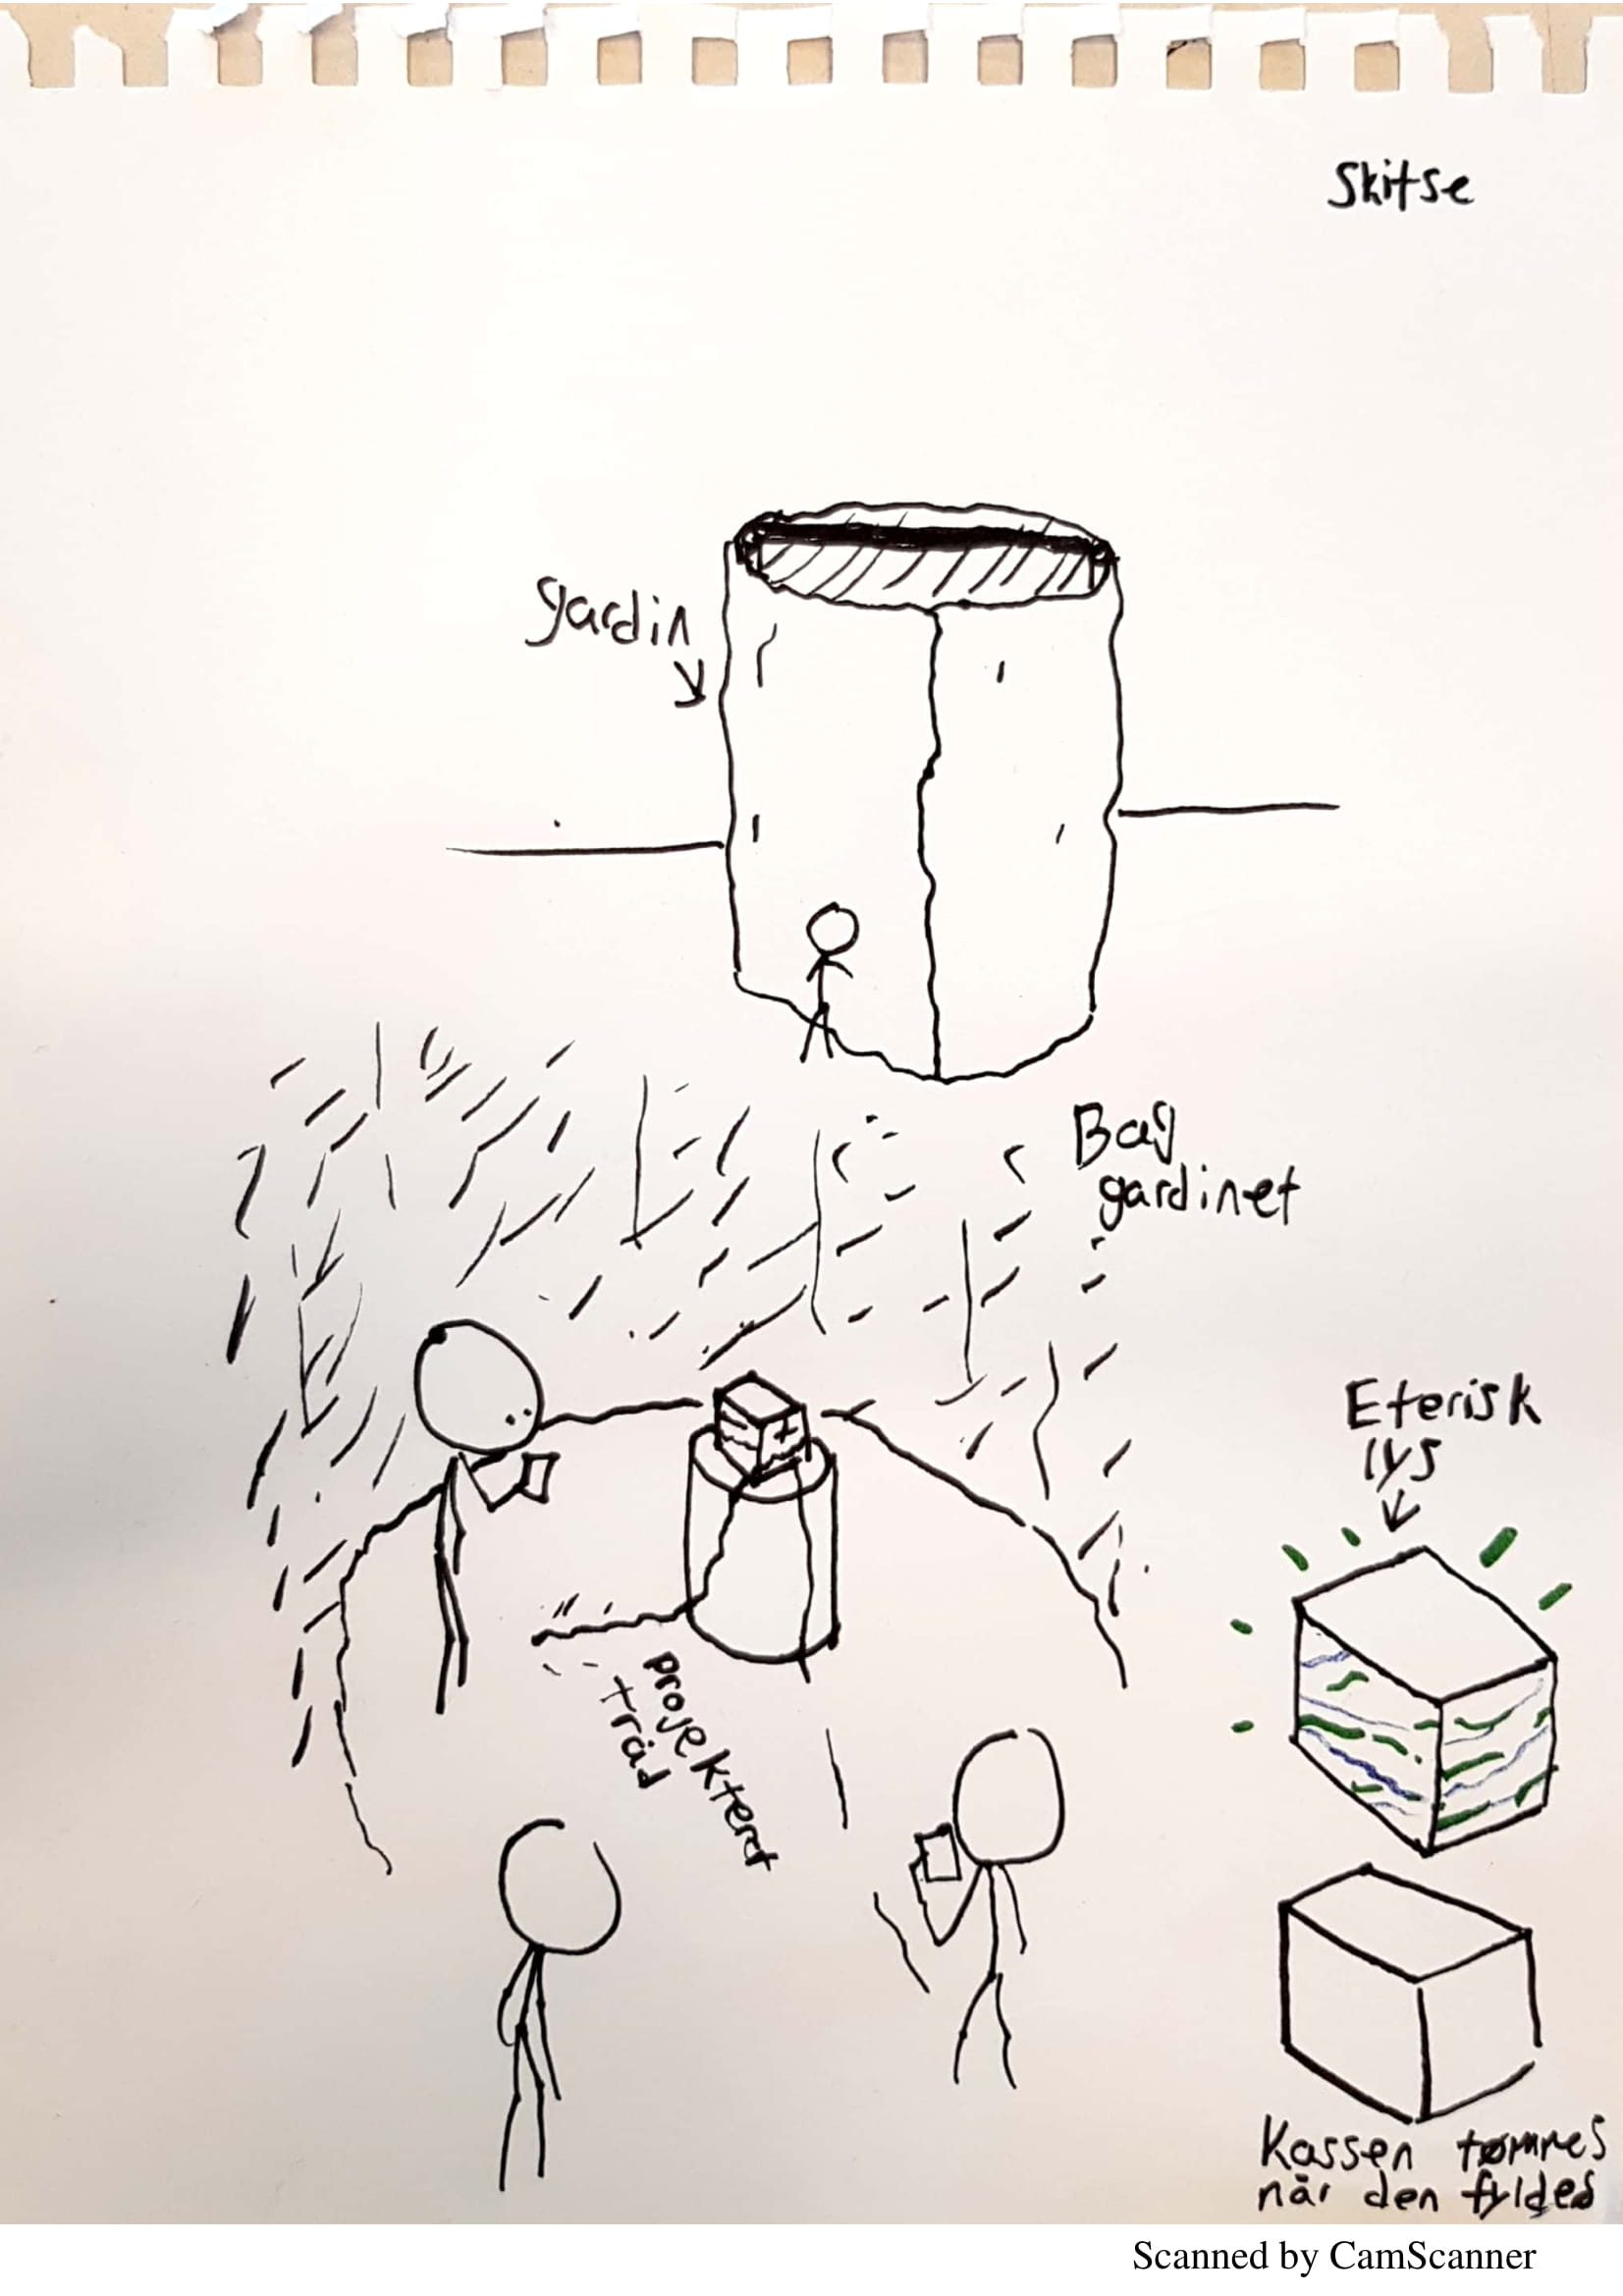 Skitse
gardin
Bag
gardinet
Eterisk
lys
projekteret
tråd
Kassen tømmes
når den fyldes
Scanned by CamScanner